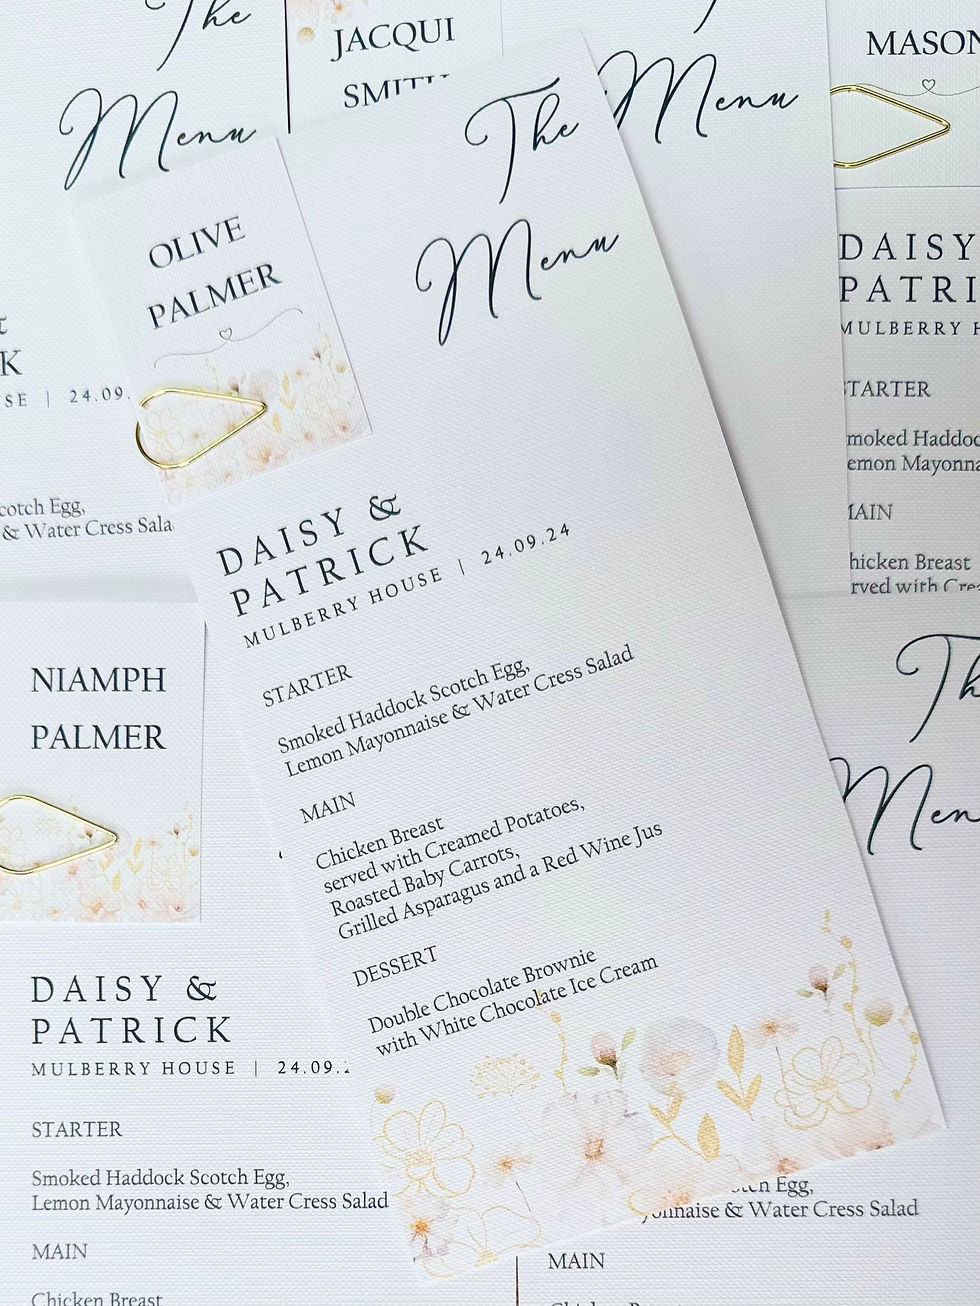 The
Menu
JACQUI
SMITH
Menu
MASON
OLIVE
PALMER
The
Menu
DAISY &
PATRICK
MULBERRY HOUSE | 24.09.24
STARTER
Smoked Haddock Scotch Egg,
Lemon Mayonnaise & Water Cress Salad
MAIN
Chicken Breast
served with Creamed Potatoes,
Roasted Baby Carrots,
Grilled Asparagus and a Red Wine Jus
DESSERT
Double Chocolate Brownie
with White Chocolate Ice Cream
K
SE | 24.09.
cotch Egg,
& Water Cress Sala
DAISY
PATRI
MULBERRY H
TARTER
moked Haddoc
emon Mayonna
MAIN
hicken Breast
rved with Cre
The
Men
NIAMPH
PALMER
DAISY &
PATRICK
MULBERRY HOUSE | 24.09.2
STARTER
Smoked Haddock Scotch Egg,
Lemon Mayonnaise & Water Cress Salad
MAIN
Chicken Breast
tch Egg,
yonnaise & Water Cress Salad
MAIN